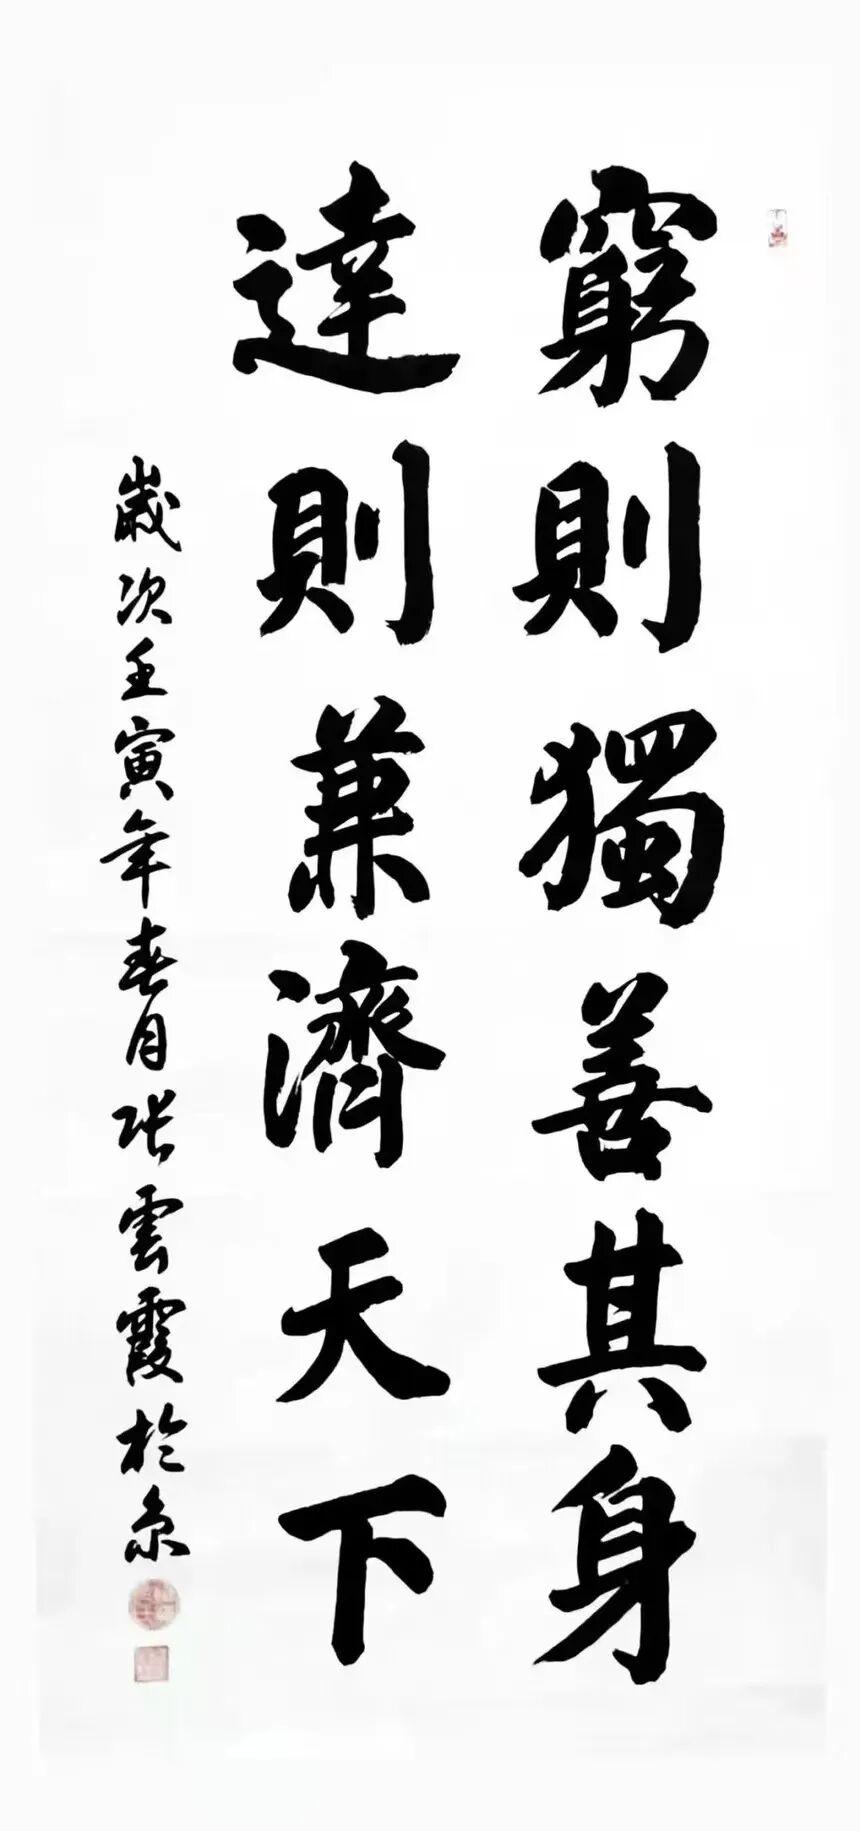 窮則獨善其身
達則兼濟天下
歲次壬寅年春月張雲霞於京